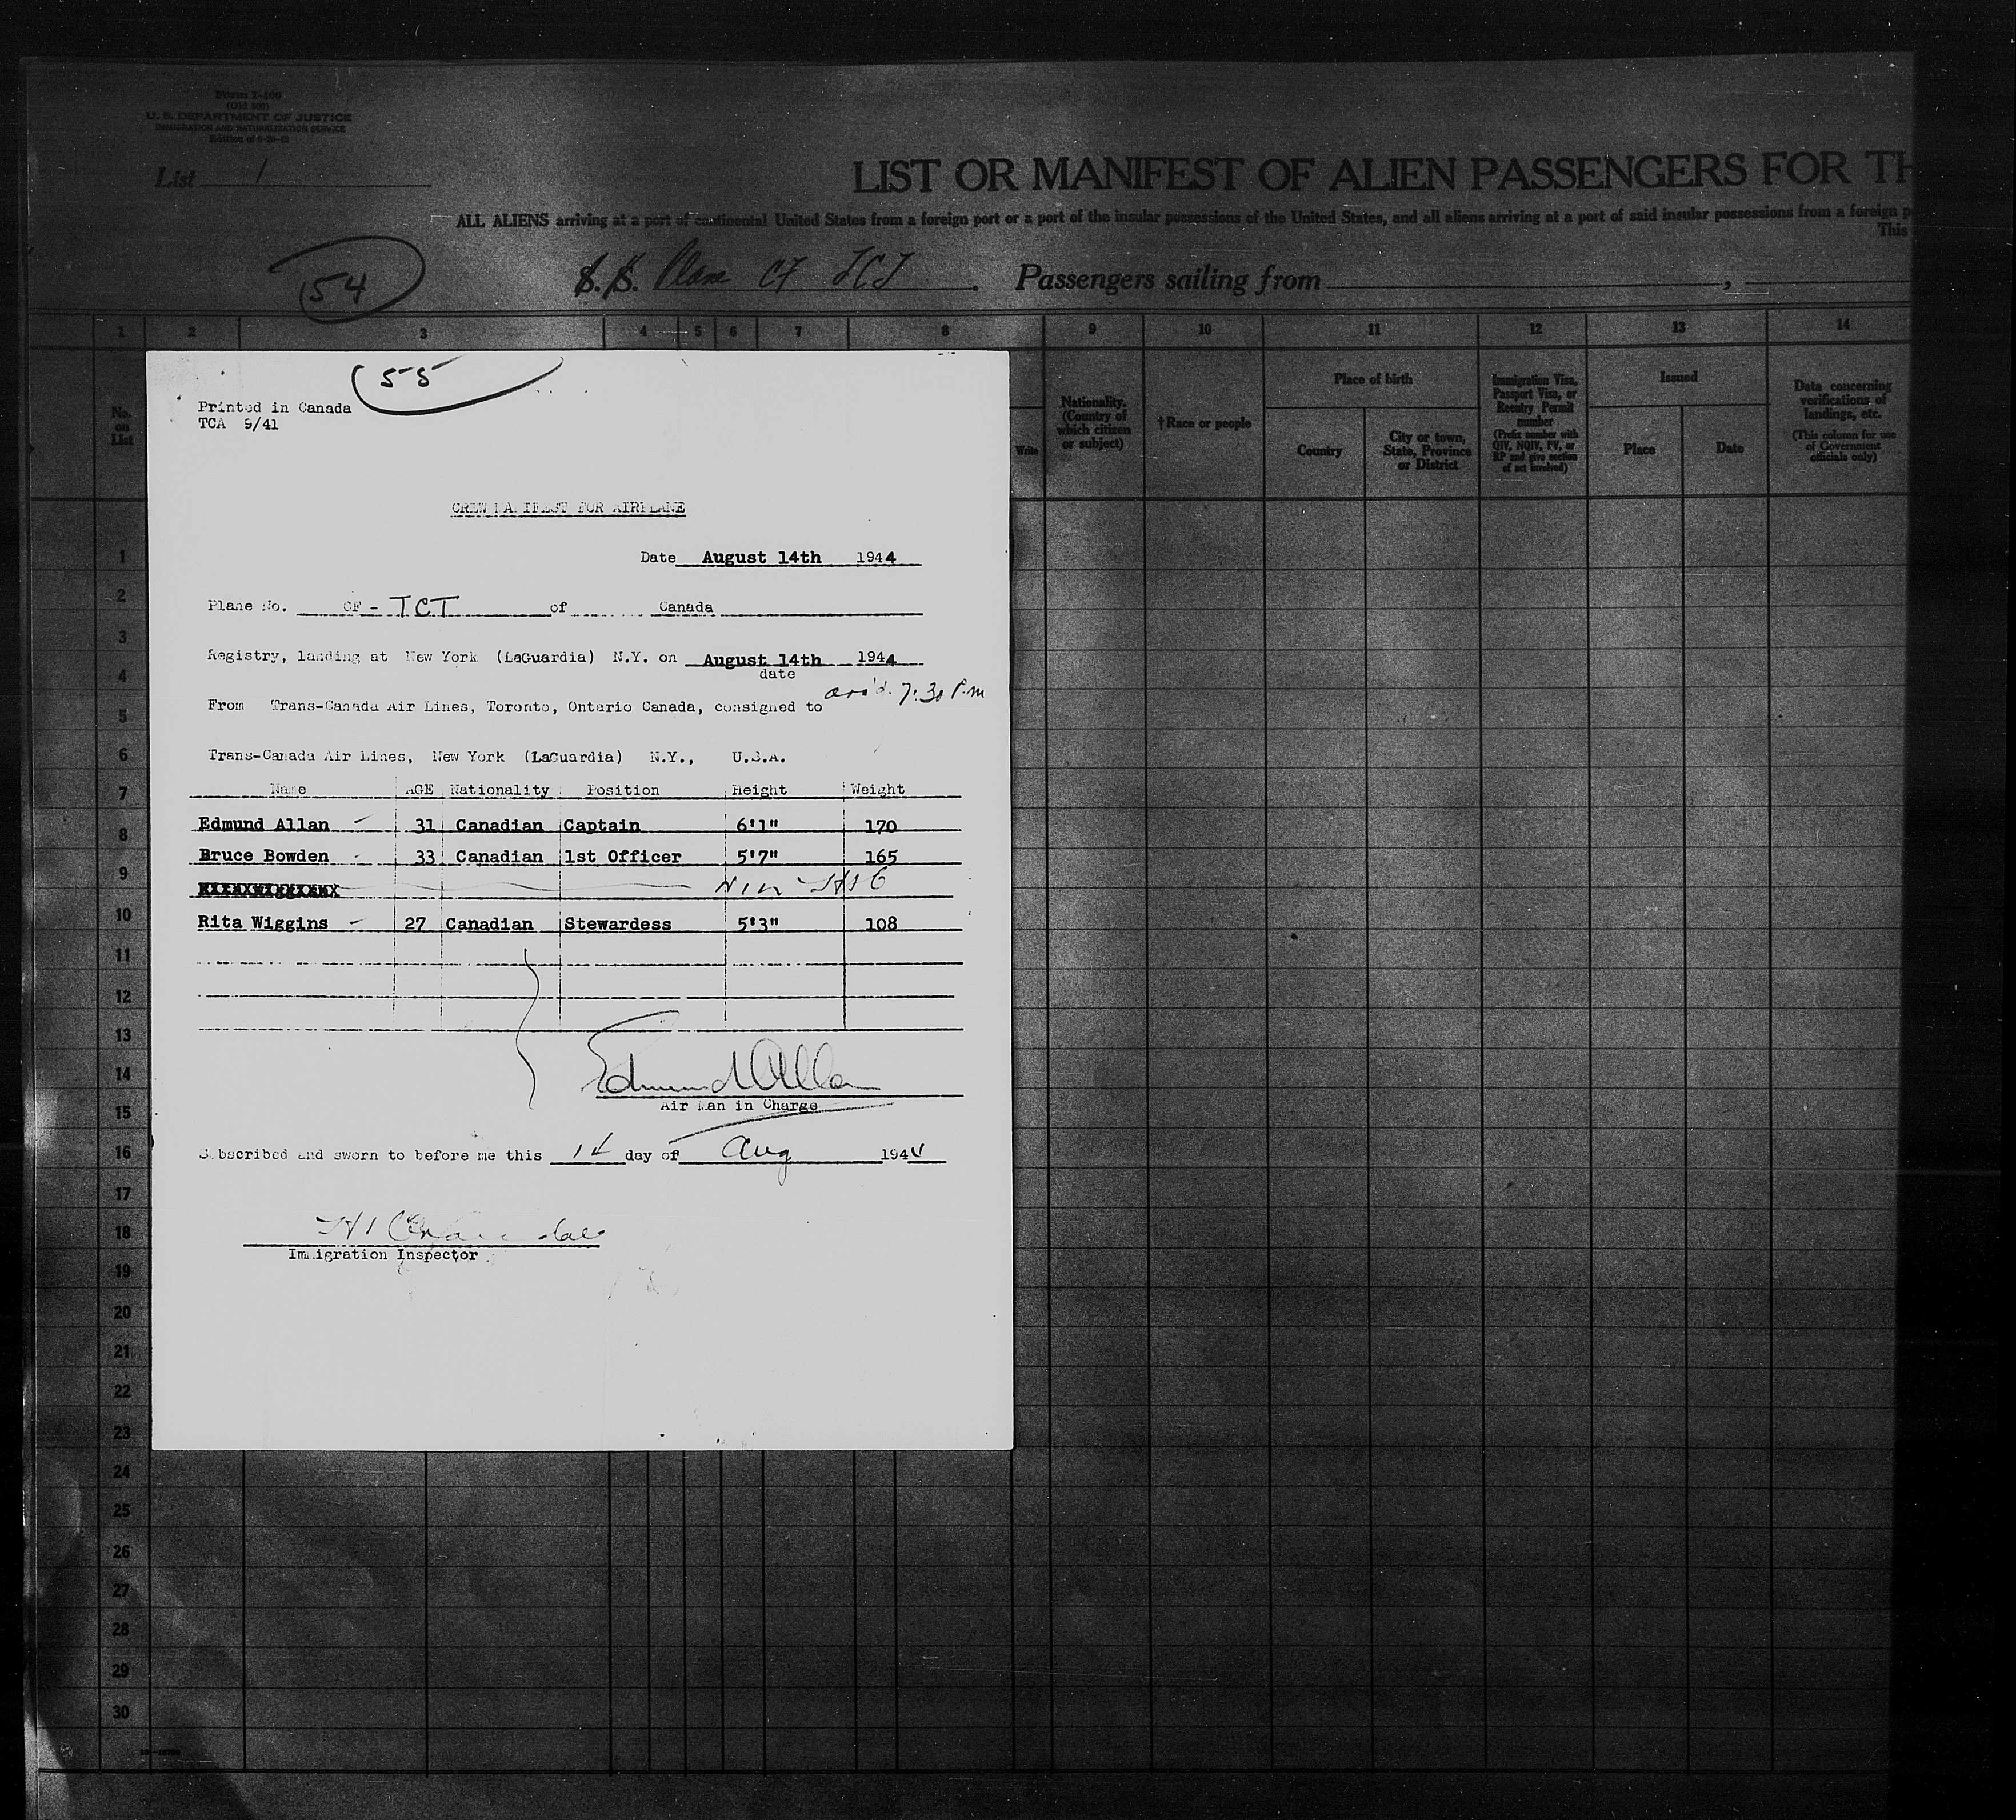 Form I-466
(Old 500)
U. S. DEPARTMENT OF JUSTICE
IMMIGRATION AND NATURALIZATION SERVICE
List 1
LIST OR MANIFEST OF ALIEN PASSENGERS FOR TH
ALL ALIENS arriving at a port of continental United States from a foreign port or a port of the insular possessions of the United States, and all aliens arriving at a port of said insular possessions from a foreign p
This
54
S.S. Plane CF TCT. Passengers sailing from ,
1 2 3 4 5 6 7 8 9 10 11 12 13 14
No. on List
Write
Nationality. (Country of which citizen or subject)
†Race or people
Place of birth
Country
City or town, State, Province or District
Immigration Visa, Passport Visa, or Reentry Permit number
(Prefix number with QIV, NQIV, PV, or RP and give section of act involved)
Issued
Place
Date
Data concerning verifications of landings, etc.
(This column for use of Government officials only)
55
Printed in Canada
TCA 9/41
CREW MANIFEST FOR AIRPLANE
Date August 14th 1944
Plane No. CF-TCT of Canada
Registry, landing at New York (LaGuardia) N.Y. on August 14th 1944
date
arr'd. 7:30 P.m
From Trans-Canada Air Lines, Toronto, Ontario Canada, consigned to
Trans-Canada Air Lines, New York (LaGuardia) N.Y., U.S.A.
Name AGE Nationality Position Height Weight
Edmund Allan 31 Canadian Captain 6'1" 170
Bruce Bowden 33 Canadian 1st Officer 5'7" 165
Rita Wiggins 27 Canadian Stewardess 5'3" 108
Edmund Allan
Air Man in Charge
Subscribed and sworn to before me this 14 day of Aug 1944
Immigration Inspector
1
2
3
4
5
6
7
8
9
10
11
12
13
14
15
16
17
18
19
20
21
22
23
24
25
26
27
28
29
30